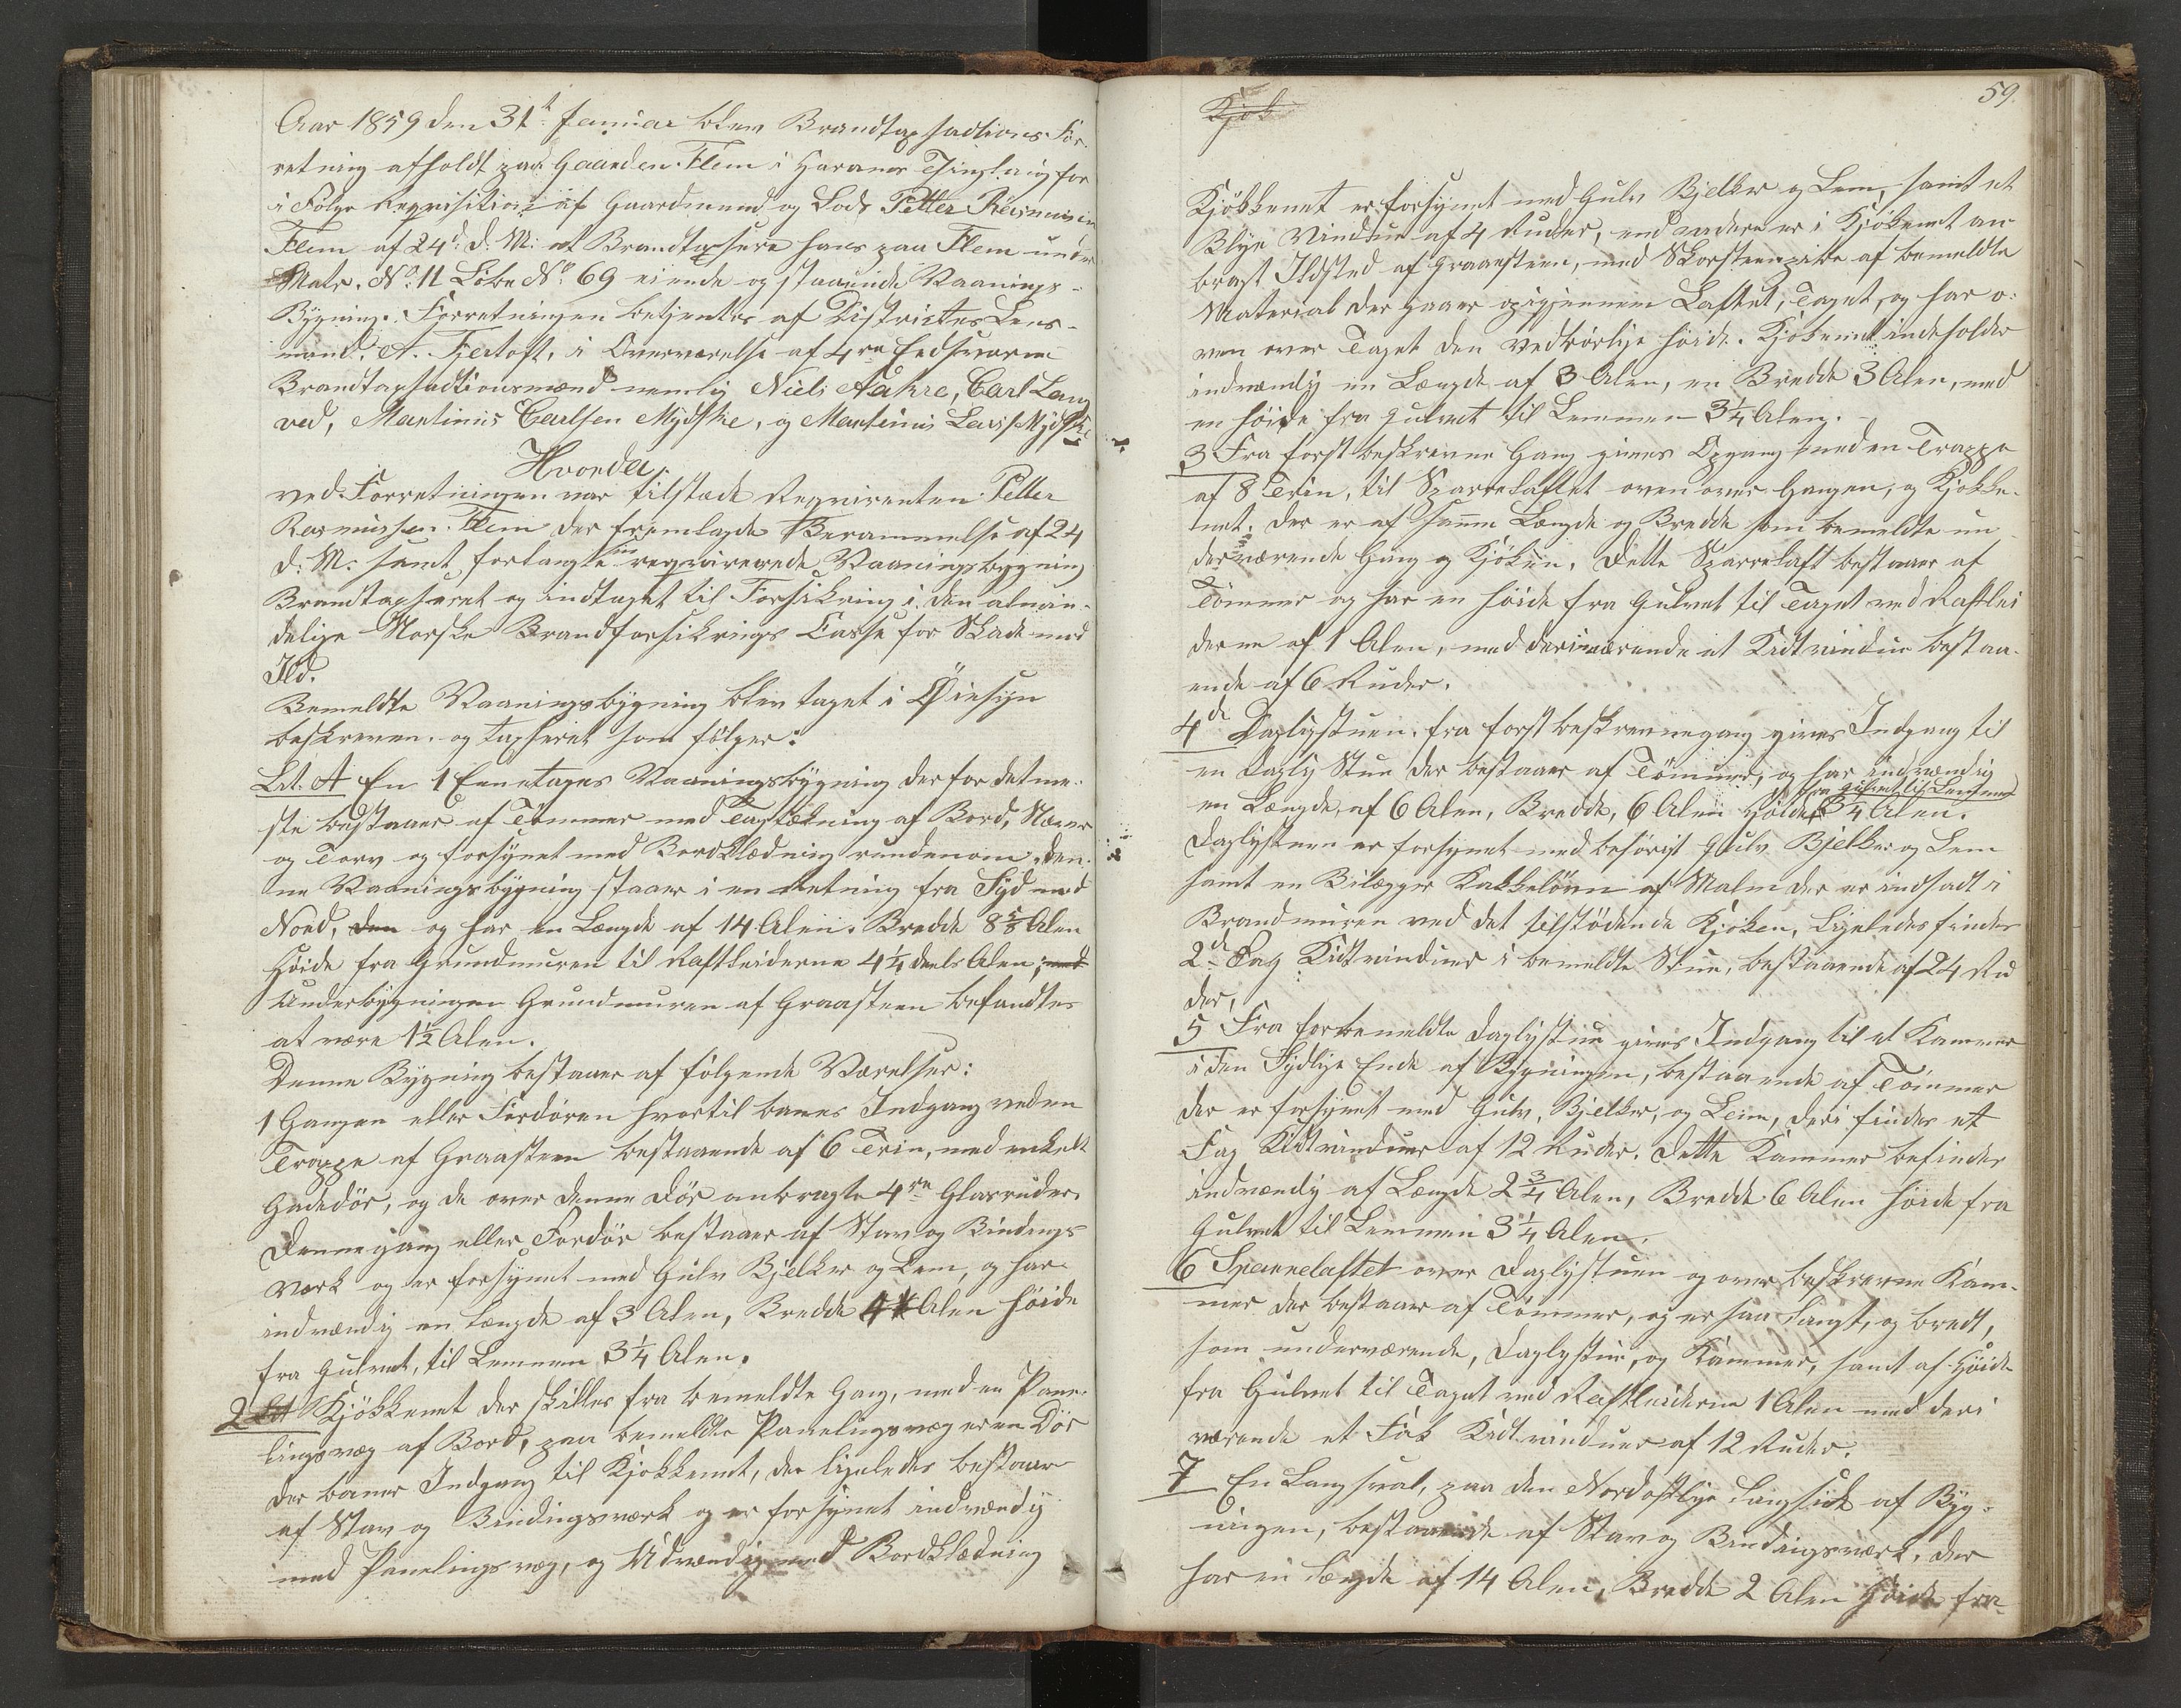 Aar 1859 den 31t Januar blev Brandtaxsactions For-
retning afholdt paa Gaarden Flem i Harams Thinglaug for
i Følge Reqvisition af Gaardmand og Lods Petter Rasmusen
Flem af 24d d. M. at Brandtaxsere hans paa Flem under
Matr. No. 11 Löbe No 69 eiende og staaende Vaanings-
Bygning. Forretningen betjentes af Districtes Lens-
mand A. Fjertoft, i Overværelse af 4re Edsvorne
Brandtaxsactionsmænd nemlig Niels Aakre, Carl Lang
ved, Martinus Carlsen Mydske, og Martinus Lars. Mydske
Hvorda
ved Forretningen var tilstæde Reqvirenten Petter
Rasmussen Flem der fremlagde Berammelse af 24
d. M. samt forlangte in reqvirerede Vaaningsbygning
Brandtaxseret og indtaget til Forsikring i den almin-
delige Norske Brandforsikrings Casse for Skade med
Ild.
Bemeldte Vaaningsbygning blev taget i Öiesyn
beskreven og taxseret som følger:
Lit. A En 1 Eenetages Vaaningsbygning der for det me-
ste bestaaer af Tömmer med Tagtækning af Bord, Næver
og Torv og forsynet med Bordklædning rundenom, den-
ne Vaaningsbygning staaer i en Retning fra Syd med
Nord, den og har en Længde af 14 Alen. Bredde 8 5/8 Alen
Höide fra Grundmuren til Raftleiderne 4 1/4 deels Alen, med
Underbygningen Grundmuren af Graasteen befandtes
at være 1 1/2 Alen.
Denne Bygning bestaaer af følgende Værelser:
1 Gangen eller Fordören hvortil banes Indgang ved en
Trappe af Graasteen bestaaende af 6 Trin, med enkelt
Gadedör, og de over denne Dör anbragte 4re Glasruder.
Denne gang eller Fordör bestaaer af Stav og Bindings
værk og er forsynet med Gulv Bjelker og Lem, og har
indvændig en Længde af 3 Alen, Bredde 4 Alen Höide
fra Gulvet, til Lemmen 3 1/4 Alen.
2 Kjökkenet der skilles fra bemeldte Gang, med en Pane-
lingsvæg af Bord, paa bemeldte Panelingsvæg er en Dör
der baner Indgang til Kjøkkenet, der ligeledes bestaaer
af Stav og Bindingsværk og er forsynet indvændig
med Panelingsvæg, og Udvændig med Bordklædning
59.
Kjök
Kjökkenet er forsynet med Gulv Bjelker og Lem, samt et
Blye Vindue af 4 Ruder, end videre er i Kjökenet an
bragt Ildsted af Graasteen, med Skorsteenpibe af bemeldte
Material der gaaer op igjennem Loftet, Taget, og har o-
ven over Taget den vedbörlige höide. Kjökenet indeholder
indvændig en Længde af 3 Alen, en Bredde 3 Alen, med
en höide fra gulvet til Lemmen 3 1/4 Alen.
3 Fra först beskrevne Gang gives Opgang med en Trappe
af 8 Trin, til Sparreloftet oven over Gangen, og Kjökke-
net. der er af samme Længde og Bredde som bemeldte un
derværende Gang og Kjöken. Dette Sparreloft bestaaer af
Tömmer og har en höide fra Gulvet til Taget ved Raftlei
derne af 1 Alen, med derinværende et Kitvindue bestaa-
ende af 6 Ruder.
4de Daglystuen. fra först beskrevnegang gives Indgang til
en Dagly Stue der bestaaer af Tömmer, og har indvændig
en Længde, af 6 Alen, Bredde, 6 Alen Höide fra Gulvet til Lemmen 3 1/4 Alen.
Daglystuen er forsynet med behörigt Gulv Bjelker og Lem
samt en Bilægger Kakkelövn af Malm der er indsadt i
Brandmuren ved det tilstödende Kjöken, Ligeledes findes
2de Fag Kitvinduer i bemeldte Stue, bestaaende af 24 Ru
der,
5 Fra forbemeldte Daglystue gives Indgang til et Kammer
i den Sydlige Ende af Bygningen, bestaaende af Tömmer
der er forsynet med Gulv, Bjelker, og Lem, deri findes et
Fag Kitvinduer af 12 Ruder. Dette Kammer befindes
indvændig af Længde 2 3/4 Alen, Bredde 6 Alen höide fra
Gulvet til Lemmen 3 1/4 Alen.
6 Sparreloftet over Daglystuen og over beskrevne Kam-
mer der bestaaer af Tömmer, og er saa langt, og bredt,
som underværende, Daglystue, og Kammer, samt af höide
fra Gulvet til Taget ved Raftleiderne 1 Alen med deri
værende et Fak Kitvinduer af 12 Ruder.
7 En Langsval, paa den Nordostlige Langside af Byg-
ningen, bestaaende af Stav og Bindingsværk, der
har en Længde af 14 Alen, Bredde 2 Alen höide fra